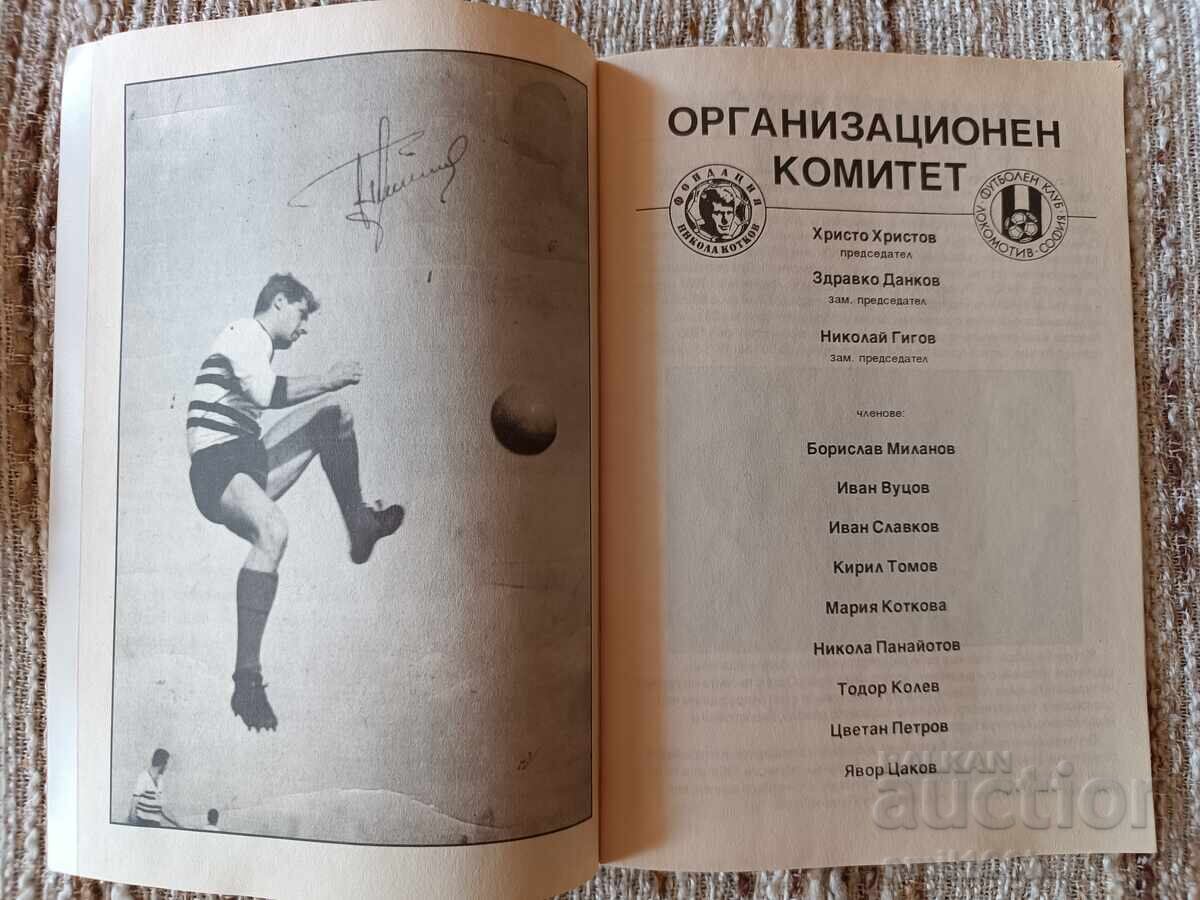 ОРГАНИЗАЦИОНЕН
КОМИТЕТ
ФОНДАЦИЯ
НИКОЛА КОТКОВ
ФУТБОЛЕН КЛУБ
ЛОКОМОТИВ - СОФИЯ
Христо Христов
председател
Здравко Данков
зам. председател
Николай Гигов
зам. председател
членове:
Борислав Миланов
Иван Вуцов
Иван Славков
Кирил Томов
Мария Коткова
Никола Панайотов
Тодор Колев
Цветан Петров
Явор Цаков
BALKAN
auction